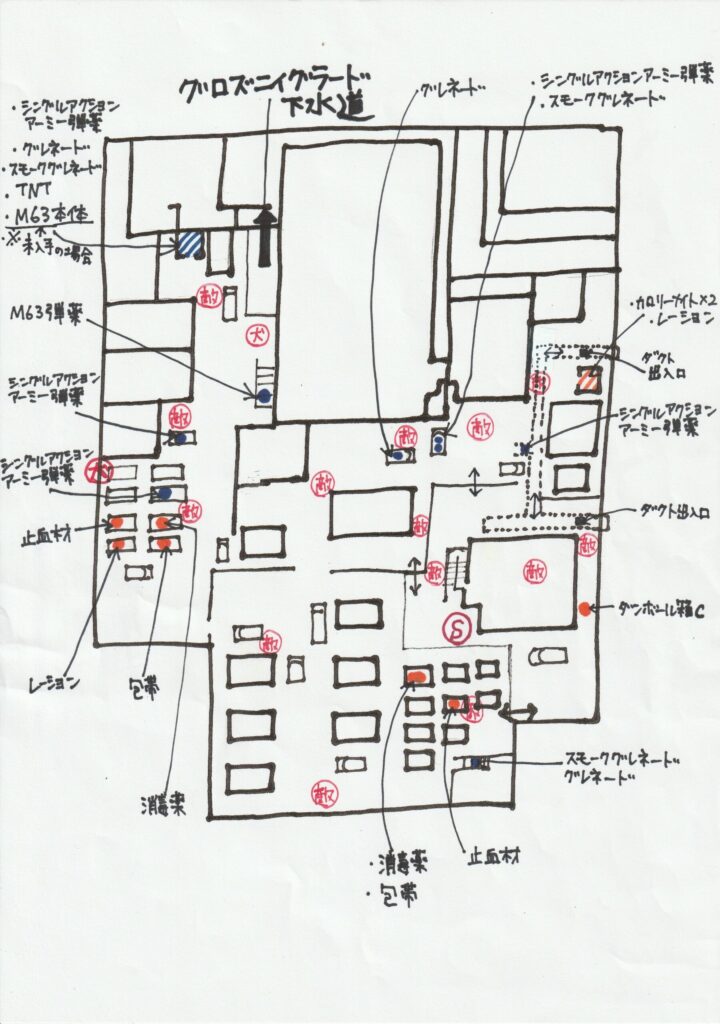 グロズニィグラード
下水道
・シングルアクション
アーミー弾薬
・グレネード
・スモークグレネード
・TNT
・M63本体
・※未入手の場合
グレネード
・シングルアクションアーミー弾薬
・スモークグレネード
M63弾薬
・カロリーメイト×2
・レーション
ダクト
出入口
シングルアクション
アーミー弾薬
シングルアクション
アーミー弾薬
シングルアクション
アーミー弾薬
止血材
ダクト出入口
ダンボール箱C
レーション
包帯
消毒薬
スモークグレネード
グレネード
・消毒薬
・包帯
止血材
敵
犬
敵
敵
敵
敵
犬
敵
敵
敵
敵
敵
敵
S
敵
敵
敵